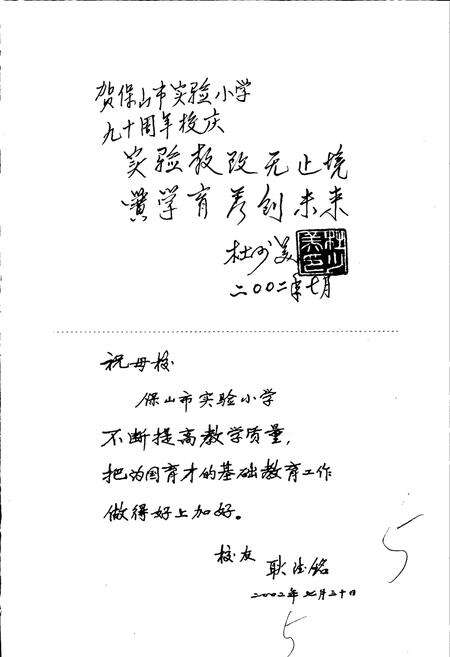 贺保山市实验小学
九十周年校庆
实验教改无止境
黉学育秀创未来
杜少美
二〇〇二年七月
祝母校
保山市实验小学
不断提高教学质量，
把为国育才的基础教育工作
做得好上加好。
校友 耿德铭
2002年七月二十日
5
5